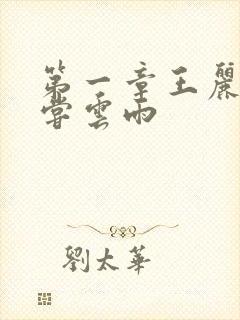 第一章王麗
嘗雲雨
劉太華